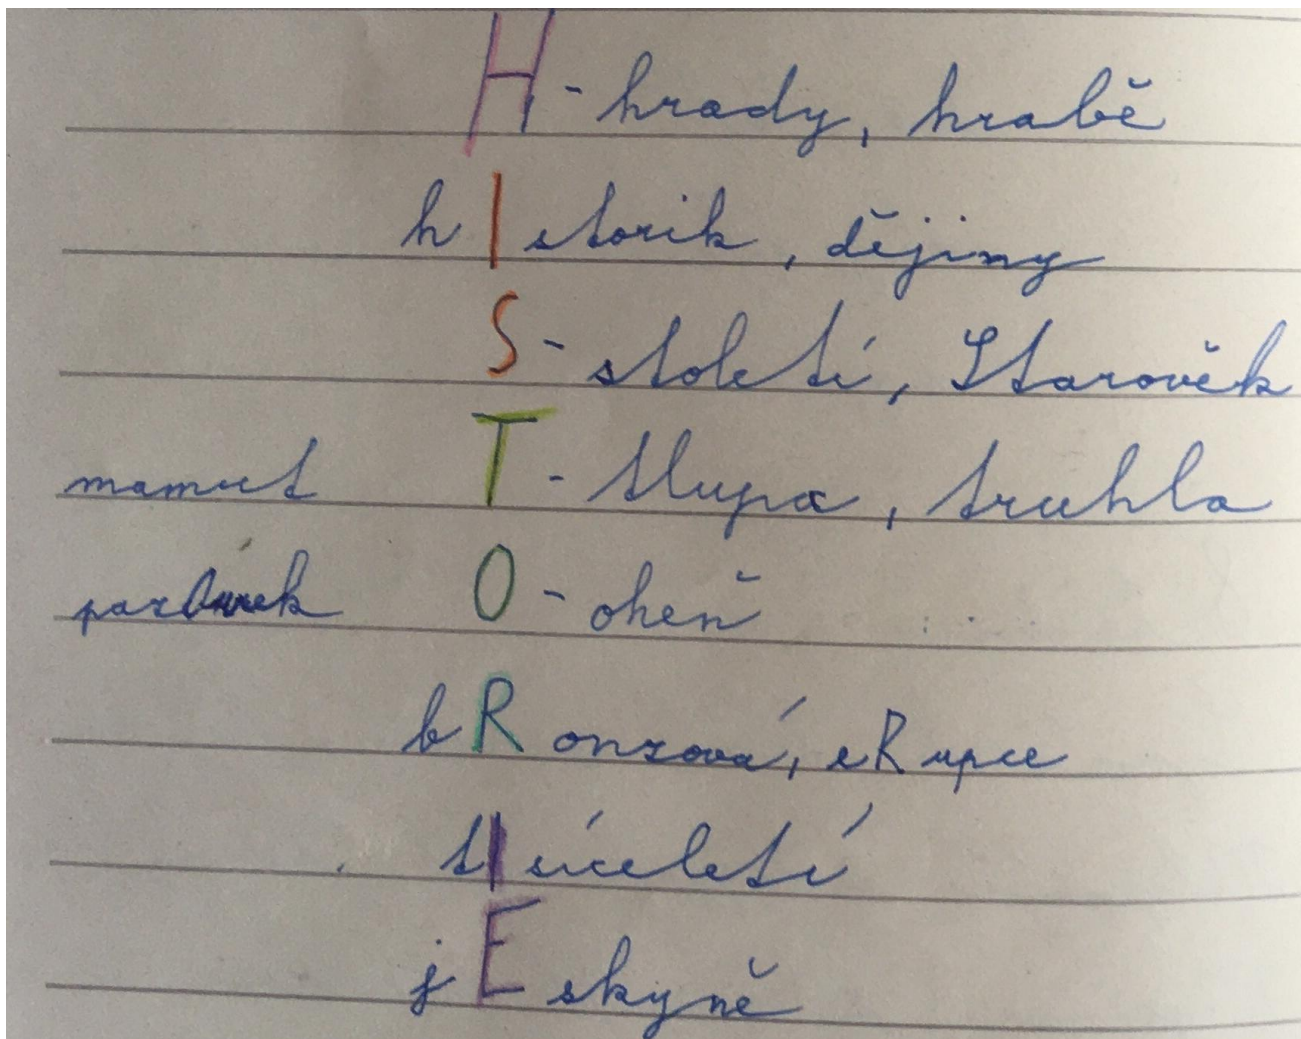 H - hrady, hrabě
hIstorik, dějiny
S - století, Starověk
mamut T - tlupa, truhla
pazOurek O - oheň
bRonzová, eRupce
tIsíceletí
jEskyně